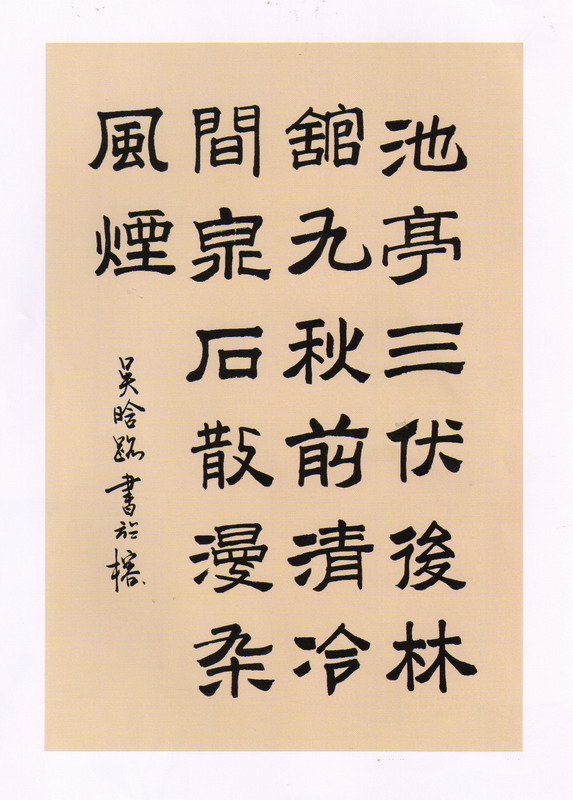 池亭三伏後林
舘九秋前清冷
間泉石散漫杂
風煙
吴晗踪書於榕